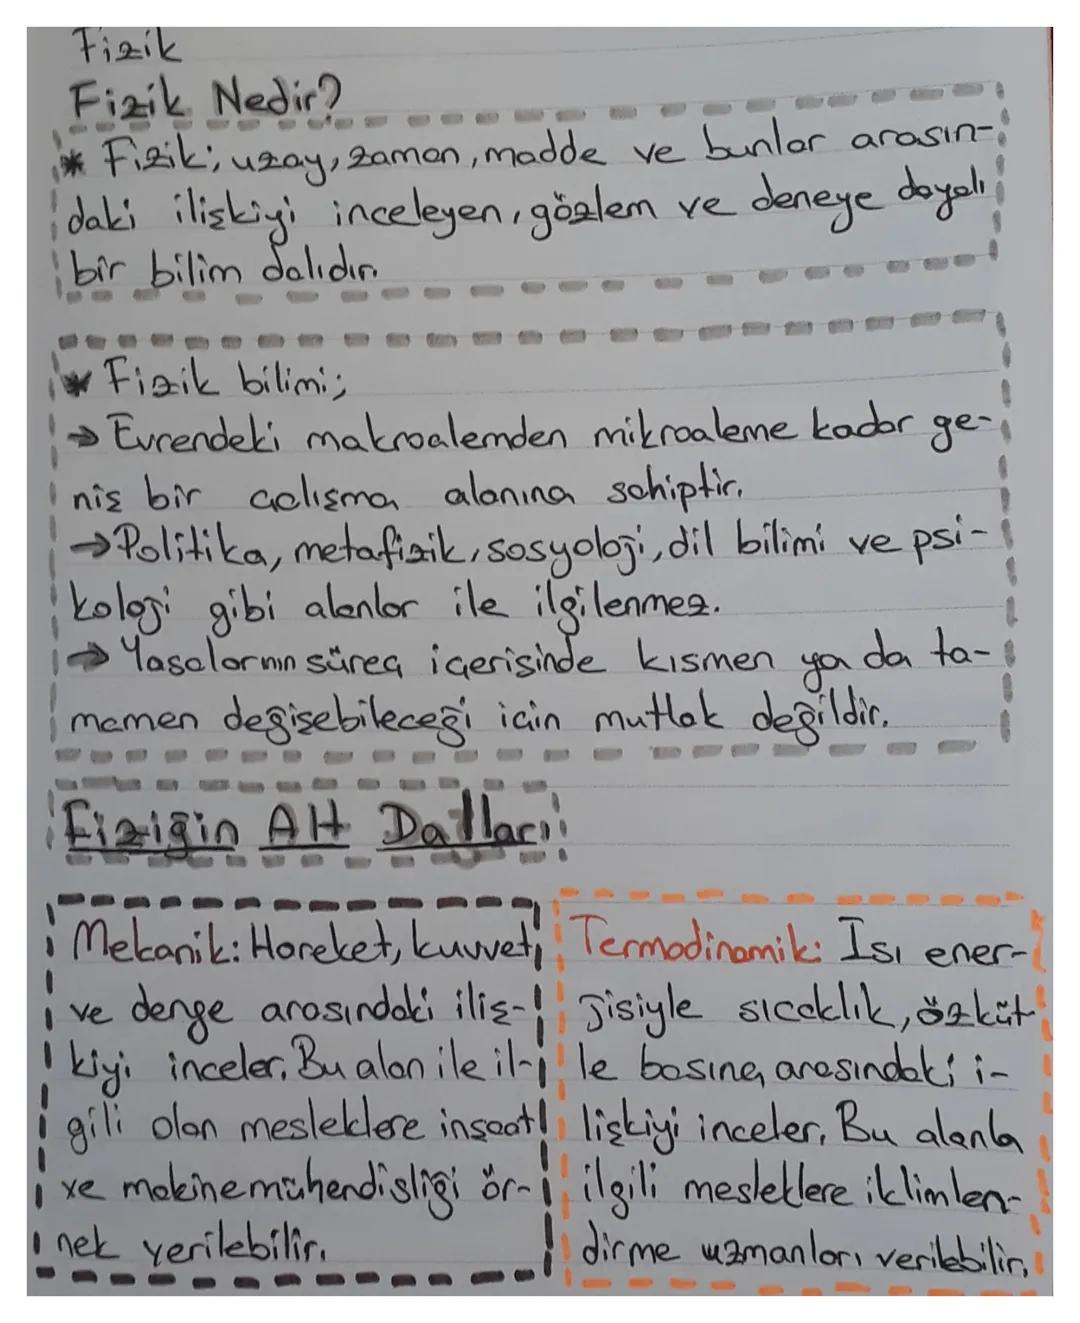 Fizik
Fizik Nedir?
* Fizik; uzay, zaman, madde ve bunlar arasın-
daki ilişkiyi inceleyen, gözlem ve deneye dayalı
bir bilim dalıdır.
* Fizik bilimi;
→ Evrendeki makroalemden mikroaleme kadar ge-
niş bir çalışma alanına sahiptir.
→ Politika, metafizik, sosyoloji, dil bilimi ve psi-
koloji gibi alanlar ile ilgilenmez.
→ Yasalarının süreç içerisinde kısmen ya da ta-
mamen değişebileceği için mutlak değildir.
Fiziğin Alt Dalları
Mekanik: Hareket, kuvvet,
ve denge arasındaki iliş-
kiyi inceler. Bu alan ile il-
gili olan mesleklere inşaat
ve makine mühendisliği ör-
nek verilebilir.
Termodinamik: Isı ener-
jisiyle sıcaklık, özküt
le basınç arasındaki i-
lişkiyi inceler. Bu alanla
ilgili mesleklere iklimlen-
dirme uzmanları verilebilir.